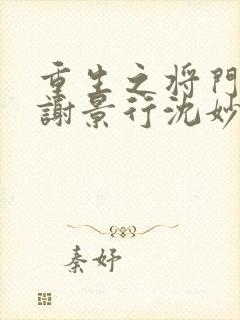 重生之将門
謝景行沈妙
秦妤